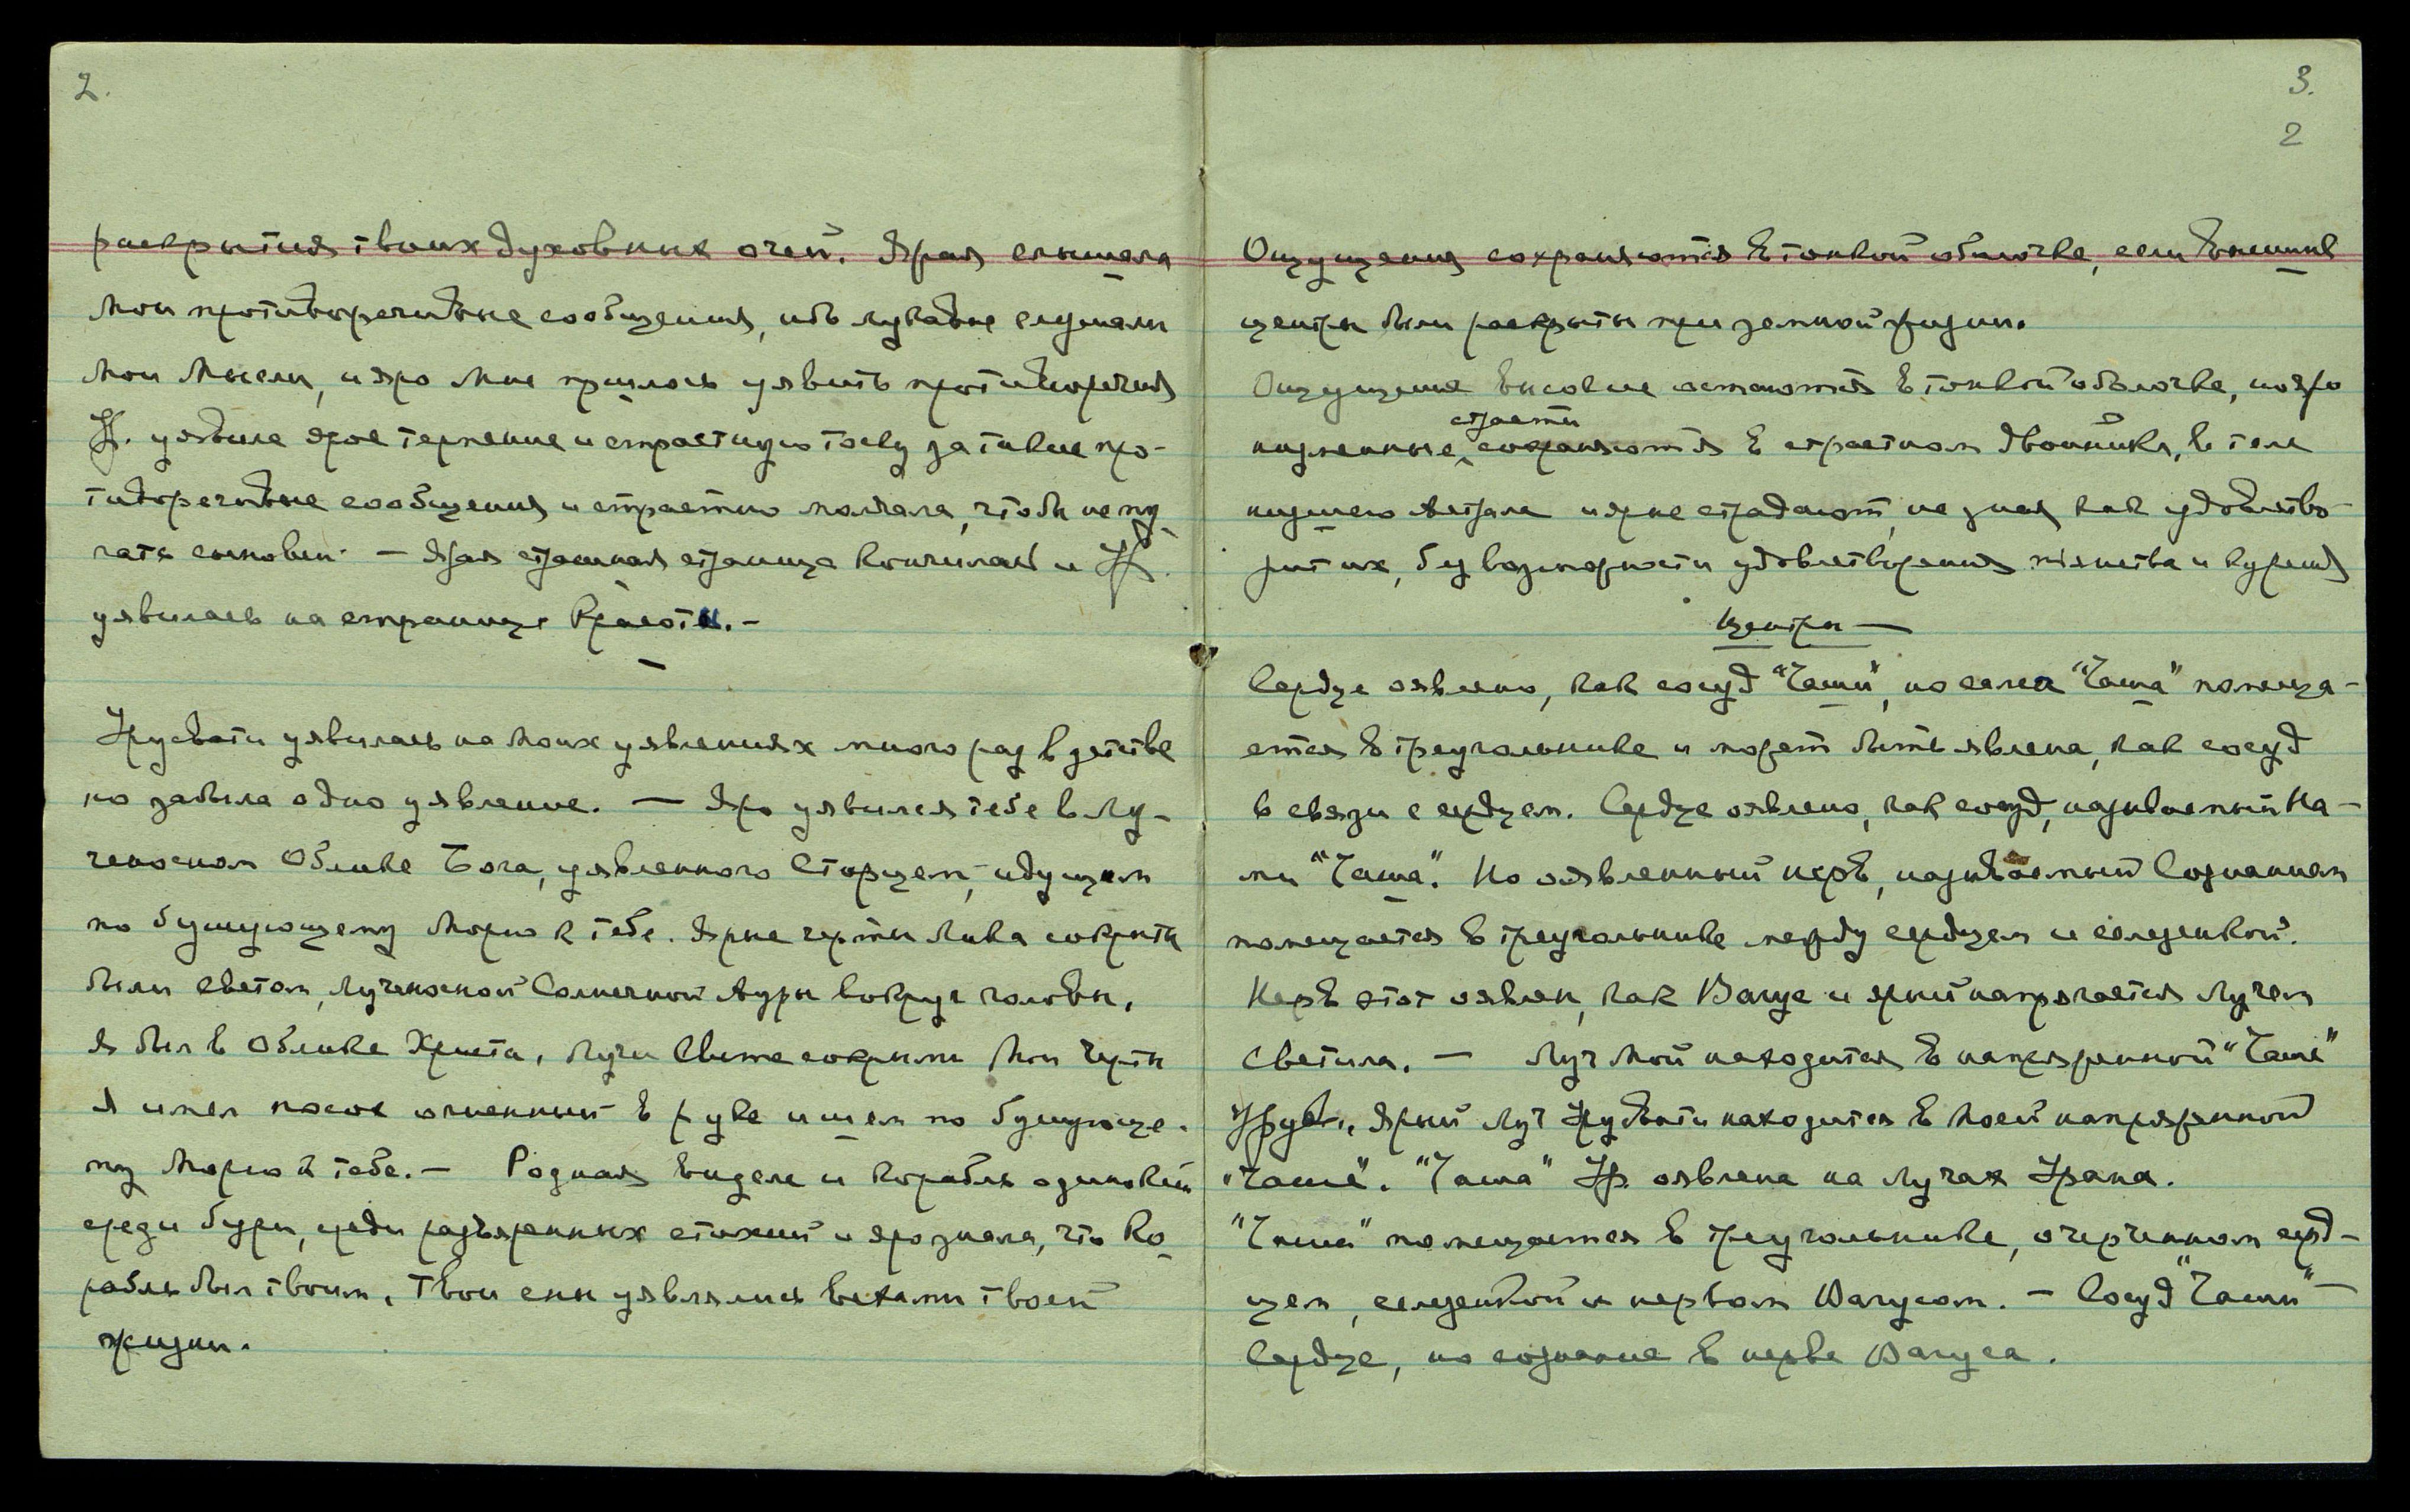 2.
раскрытия твоих духовных очей. Ярая слышала
Мои противоречивые сообщения, ибо лукавые слушали
Мои Мысли, и яро Мне пришлось уявить противоречия
Ур. уявила ярое терпение и страстную тоску за такие про-
тиворечивые сообщения и страстно молчала, чтобы не му-
чать сыновей. — Ярая страшная страница кончилась и Ур.
уявилась на странице Красоты. —
Урусвати уявилась на Моих уявлениях много раз в детстве
но забыла одно уявление. — Яро уявился тебе в Лу-
ченосном Облике Бога, уявленного Старцем, идущем
по бушующему Морю к тебе. Ярые черты Лика сокрыты
были Светом, Лученосной Солнечной Ауры вокруг головы.
Я был в Облике Христа, Лучи Света сокрыли Мои Черты
Я имел посох огненный в руке и шел по бушующе-
му Морю к тебе. — Родная видела и корабль одинокий
среди бури, среди разъяренных стихий и яро знала, что Ко-
рабль был твоим. Твои сны уявлялись вехами твоей
жизни.
3.
2
Ощущения сохраняются в тонкой оболочке, если высшие
центры были раскрыты при земной жизни.
Ощущения высокие остаются в тонкой оболочке, но яро
страсти
низменные, сохраняются в страстном двойнике, в теле
низшего Астрала и ярые страдают, не зная как удовлетво-
рить их, без возможности удовлетворения пьянства и курения
Центры —
Сердце оявлено, как сосуд "Чаши", но сама "Чаша" помеща-
ется в треугольнике и может быть явлена, как сосуд
в связи с сердцем. Сердце оявлено, как сосуд, называемый На-
ми "Чаша". Но оявленный нерв, называемый Сознанием
помещается в треугольнике между сердцем и селезенкой.
Нерв этот оявлен, как Вагус и ярый напрягается Лучом
Светила. — Луч Мой находится в напряженной "Чаше"
Урув., Ярый Луч Урусвати находится в Моей напряженной
"Чаше". "Чаша" Ур. оявлена на Лучах Урана.
"Чаша" помещается в треугольнике, очерченном серд-
цем, селезенкой и нервом Вагусом. — Сосуд "Чаши" —
Сердце, но сознание в нерве Вагуса.